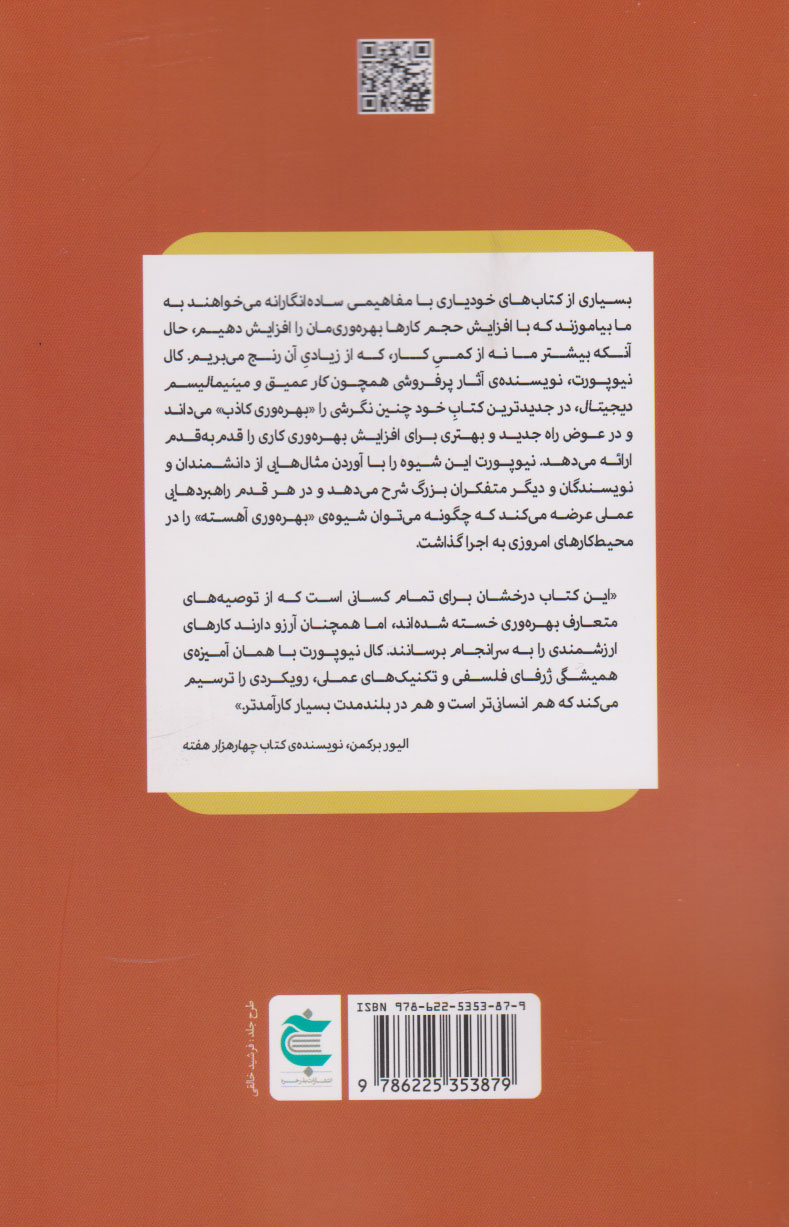 بسیاری از کتاب‌های خودیاری با مفاهیمی ساده‌انگارانه می‌خواهند به
ما بیاموزند که با افزایش حجم کارها بهره‌وری‌مان را افزایش دهیم، حال
آنکه بیشتر ما نه از کمیِ کار، که از زیادیِ آن رنج می‌بریم. کال
نیوپورت، نویسنده‌ی آثار پرفروشی همچون کار عمیق و مینیمالیسم
دیجیتال، در جدیدترین کتابِ خود چنین نگرشی را «بهره‌وری کاذب» می‌داند
و در عوض راه جدید و بهتری برای افزایش بهره‌وری کاری را قدم‌به‌قدم
ارائه می‌دهد. نیوپورت این شیوه را با آوردن مثال‌هایی از دانشمندان و
نویسندگان و دیگر متفکران بزرگ شرح می‌دهد و در هر قدم راهبردهایی
عملی عرضه می‌کند که چگونه می‌توان شیوه‌ی «بهره‌وری آهسته» را در
محیط‌کارهای امروزی به اجرا گذاشت.
«این کتاب درخشان برای تمام کسانی است که از توصیه‌های
متعارف بهره‌وری خسته شده‌اند، اما همچنان آرزو دارند کارهای
ارزشمندی را به سرانجام برسانند. کال نیوپورت با همان آمیزه‌ی
همیشگی ژرفای فلسفی و تکنیک‌های عملی، رویکردی را ترسیم
می‌کند که هم انسانی‌تر است و هم در بلندمدت بسیار کارآمدتر.»
الیور برکمن، نویسنده‌ی کتاب چهارهزار هفته
طرح جلد: فرشید خالقی
ISBN 978-622-5353-87-9
9 786225 353879